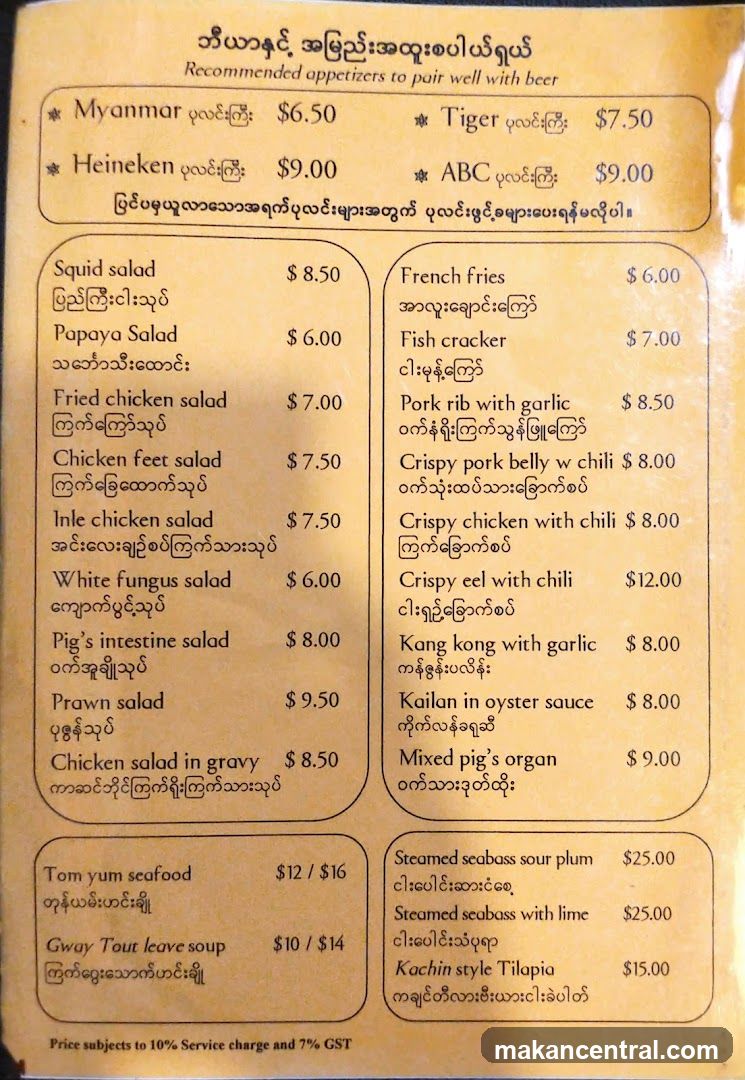 ဘီယာနှင့် အမြည်းအထူးစပါယ်ရှယ်
Recommended appetizers to pair well with beer
Myanmar ပုလင်းကြီး $6.50
Tiger ပုလင်းကြီး $7.50
Heineken ပုလင်းကြီး $9.00
ABC ပုလင်းကြီး $9.00
ပြင်ပမှယူလာသောအရက်ပုလင်းများအတွက် ပုလင်းဖွင့်ခများပေးရန်မလိုပါ။
Squid salad $ 8.50
ပြည်ကြီးငါးသုပ်
Papaya Salad $ 6.00
သင်္ဘောသီးထောင်း
Fried chicken salad $ 7.00
ကြက်ကြော်သုပ်
Chicken feet salad $ 7.50
ကြက်ခြေထောက်သုပ်
Inle chicken salad $ 7.50
အင်းလေးချဉ်စပ်ကြက်သားသုပ်
White fungus salad $ 6.00
ကျောက်ပွင့်သုပ်
Pig's intestine salad $ 8.00
ဝက်အူချိုသုပ်
Prawn salad $ 9.50
ပုဇွန်သုပ်
Chicken salad in gravy $ 8.50
ကာဆင်ဘိုင်ကြက်ရိုးကြက်သားသုပ်
French fries $ 6.00
အာလူးချောင်းကြော်
Fish cracker $ 7.00
ငါးမုန့်ကြော်
Pork rib with garlic $ 8.50
ဝက်နံရိုးကြက်သွန်ဖြူကြော်
Crispy pork belly w chili $ 8.00
ဝက်သုံးထပ်သားခြောက်စပ်
Crispy chicken with chili $ 8.00
ကြက်ခြောက်စပ်
Crispy eel with chili $12.00
ငါးရှဉ့်ခြောက်စပ်
Kang kong with garlic $ 8.00
ကန်ဇွန်းပလိန်း
Kailan in oyster sauce $ 8.00
ကိုက်လန်ခရုဆီ
Mixed pig's organ $ 9.00
ဝက်သားဒုတ်ထိုး
Tom yum seafood $12 / $16
တုန်ယမ်းဟင်းချို
Gway Tout leave soup $10 / $14
ကြက်ဂွေးသောက်ဟင်းချို
Steamed seabass sour plum $25.00
ငါးပေါင်းဆားငံစေ့
Steamed seabass with lime $25.00
ငါးပေါင်းသံပုရာ
Kachin style Tilapia $15.00
ကချင်တီလားဗီးယားငါးခဲပါတ်
Price subjects to 10% Service charge and 7% GST
makancentral.com